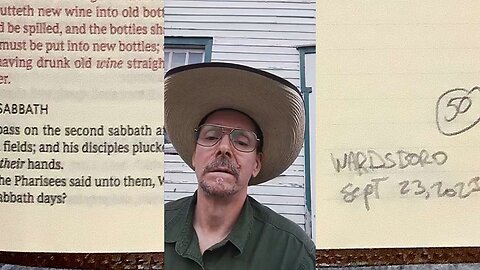 utteth new wine into old bott
d be spilled, and the bottles sha
must be put into new bottles;
aving drunk old wine straigh
er.
SABBATH
pass on the second sabbath a
fields; and his disciples pluck
their hands.
he Pharisees said unto them, W
abbath days?
50
WARDSBORO
Sept 23, 202